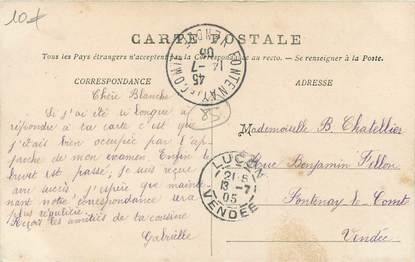 10€
CARTE POSTALE
Tous les Pays étrangers n'acceptent pas la Correspondance au recto. — Se renseigner à la Poste.
CORRESPONDANCE
ADRESSE
FONTENAY-LE-COMTE
VENDÉE
14 -7
05
85
Chère Blanche
Si j'ai été si longue à
répondre à ta carte c'est que
j'étais bien occupée par l'ap-
proche de mon examen. Enfin le
brevet est passé, je suis reçue
avec succès. J'espère que mainte-
nant notre correspondance sera
plus régulière.
Reçois les amitiés de ta cousine
Gabrielle
Mademoiselle B. Chatellier
Rue Benjamin Fillon
Fontenay-le-Comte
Vendée
LUÇON
13 -7
05
VENDÉE